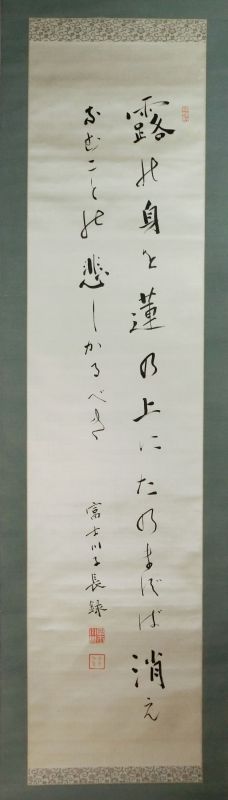 露の身を蓮の上にたのまずば消え
なむことの悲しかるべき
富士川子長録